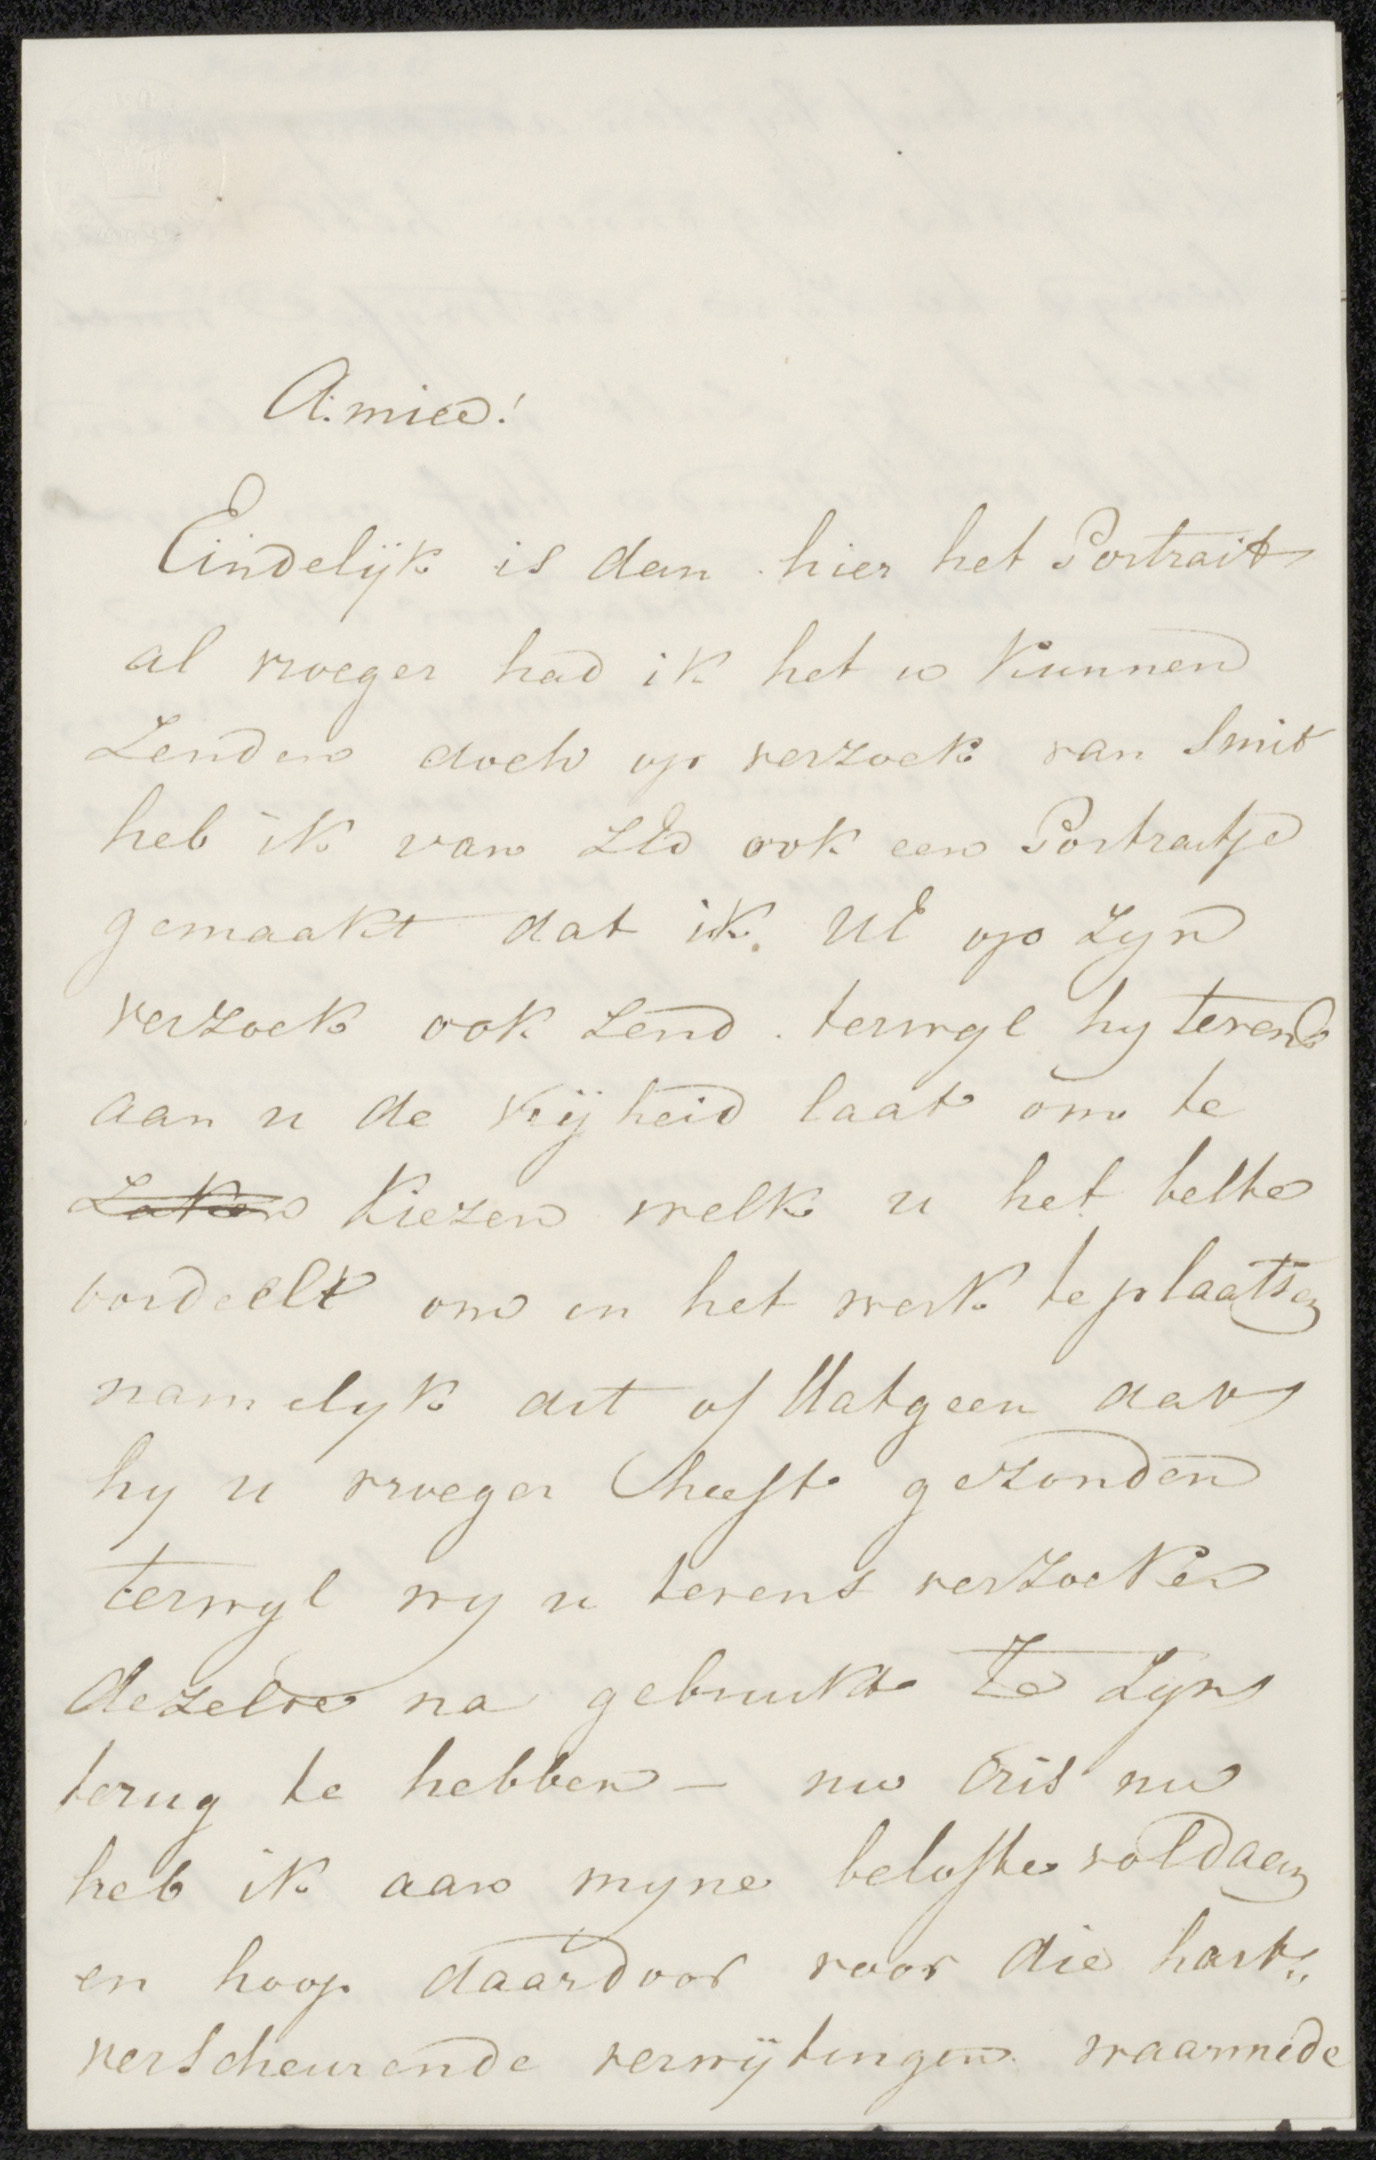 Amice!
Eindelijk is dan hier het Portrait
al vroeger had ik het u kunnen
zenden doch op verzoek van Smit
heb ik van ZEd ook een Portraitje
gemaakt dat ik UE op zyn
verzoek ook zend. terwyl hy tevens
aan u de vrijheid laat om te
kiezen welk u het beste
oordeelt om in het werk te plaatsen
namelyk dit of Datgeen dat
hy u vroeger heeft gezonden
terwyl wy u tevens verzoeken
dezelve na gebruikt te zyn
terug te hebben – nu Cris nu
heb ik aan myne belofte voldaen
en hoop daardoor voor die hart„
verscheurende verwijtingen waarmede